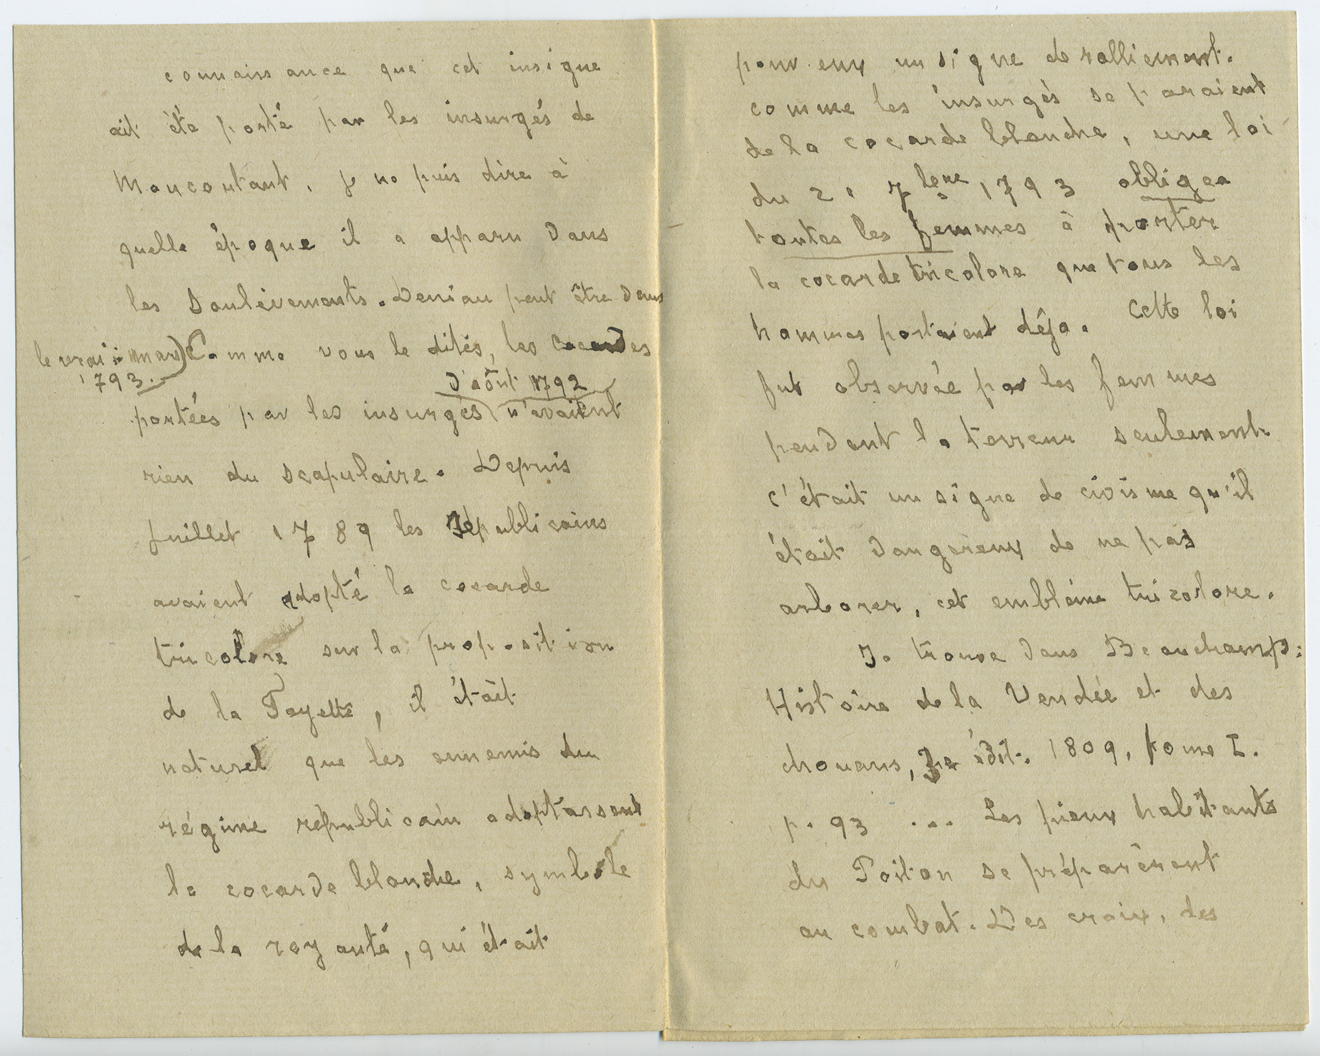 connaissance que cet insigne
ait été porté par les insurgés de
Moncoutant, je ne puis dire à
quelle époque il a apparu dans
les soulèvements. Deniau peut être dans
le vrai : mars
1793.
Comme vous le dites, les cocardes
d'août 1792
portées par les insurgés n'avaient
rien du scapulaire. Depuis
juillet 1789 les républicains
avaient adopté la cocarde
tricolore sur la proposition
de la Fayette, il était
naturel que les ennemis du
régime républicain adoptassent
la cocarde blanche, symbole
de la royauté, qui était
pour eux un signe de ralliement.
comme les insurgés se paraient
de la cocarde blanche, une loi
du 21 7bre 1793 obligea
toutes les femmes à porter
la cocarde tricolore que tous les
hommes portaient déja. Cette loi
fut observée par les femmes
pendant la terreur seulement
c'était un signe de civisme qu'il
était dangereux de ne pas
arborer, cet emblème tricolore.
Je trouve dans Beauchamp :
Histoire de la Vendée et des
chouans, édit. 1809, tome I.
p. 93 ... Les pieux habitants
du Poitou se préparèrent
au combat. Des croix, des